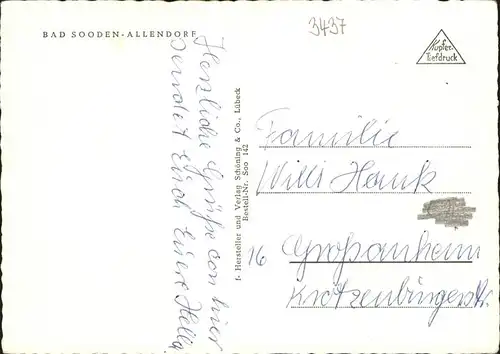 BAD SOODEN-ALLENDORF
3437
Kupfer-
Tiefdruck
Herzliche Grüße von hier
sendet Euch Euere Hella
f- Hersteller und Verlag Schöning & Co., Lübeck
Bestell-Nr. Soo 142
Familie
Willi Hank
16 Großauheim
Krotzenburgerstr.